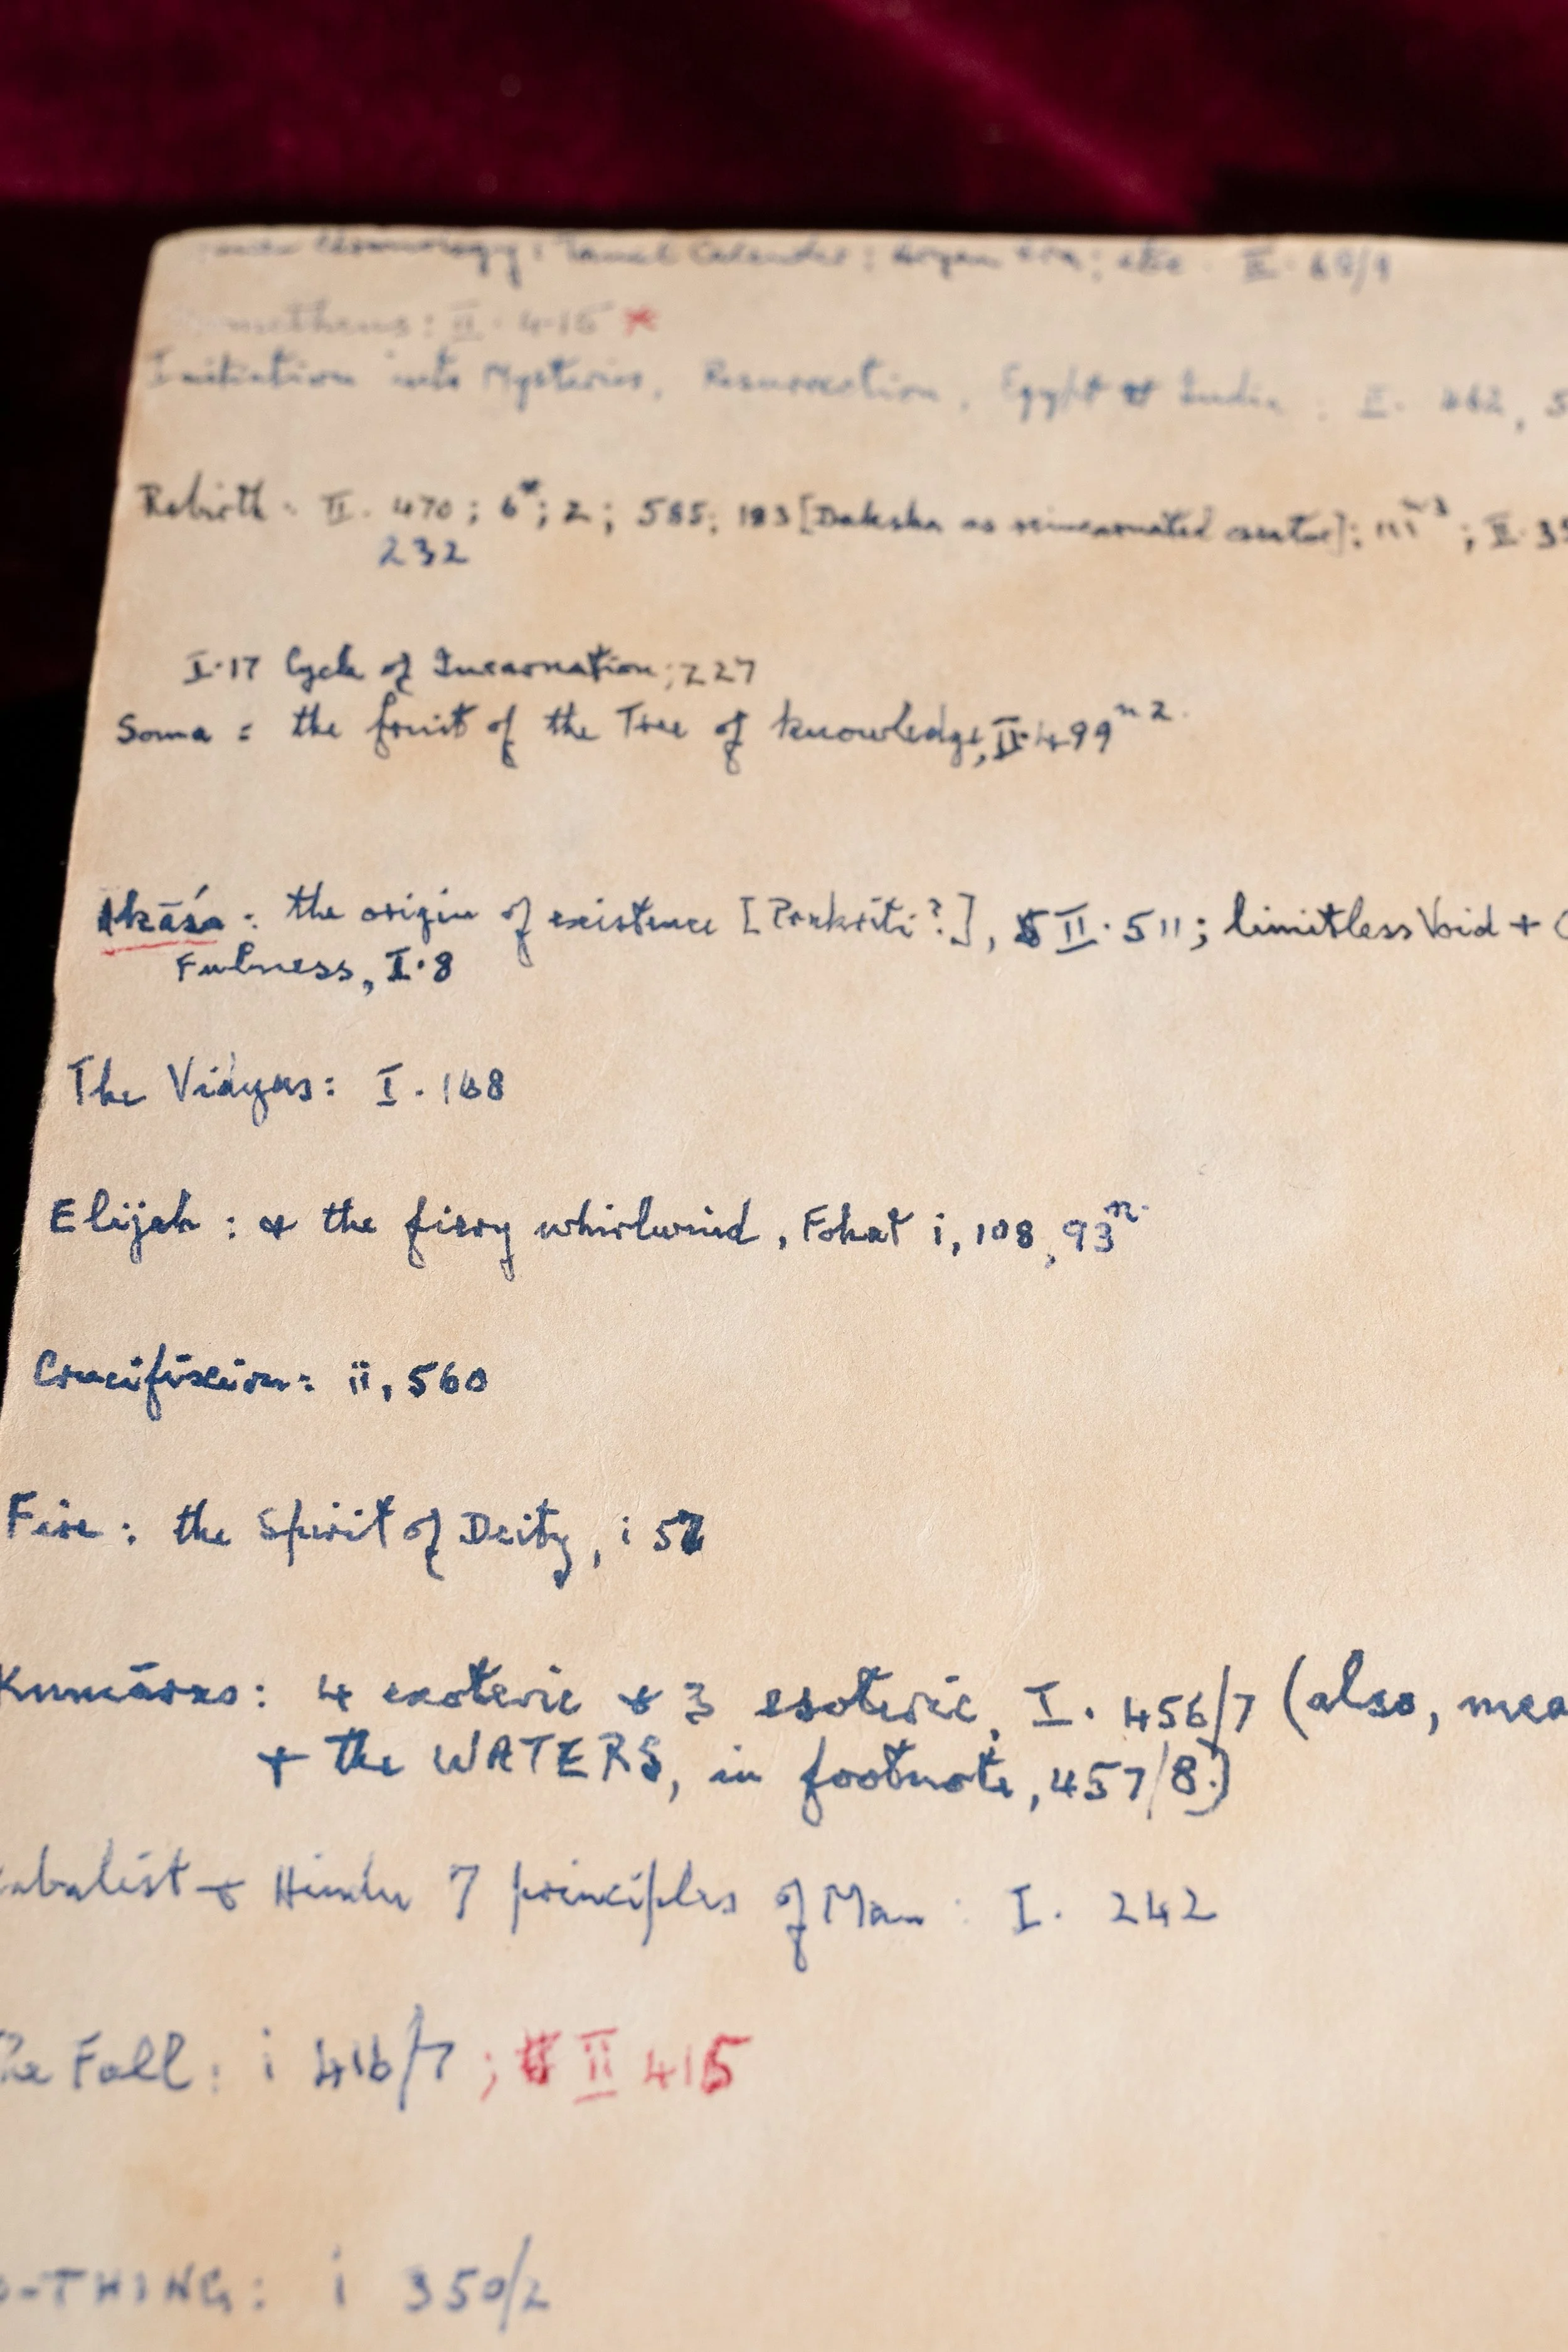 Chronology; Tamil Calendar; Aryan era; etc. II. 68/9
Prometheus: II. 415 *
Initiation into Mysteries, Resurrection, Egypt & India: II. 462,
Rebirth: II. 470; 6*; 2; 585; 183 [Daksha as reincarnated creator]; III n3; II. 35
232
I.17 Cycle of Incarnation; 227
Soma = the fruit of the Tree of knowledge, II.499 n 2.
Akāśa: the origin of existence [Prakriti?], II. 511; limitless Void +
Fulness, I.8
The Vidyas: I. 168
Elijah: & the fiery whirlwind, Fohat i, 108, 93 n.
Crucifixion: ii, 560
Fire: the Spirit of Deity, i 57
Kumāras: 4 exoteric & 3 esoteric, I. 456/7 (also, mea
+ the WATERS, in footnote, 457/8.)
abalist & Hindu 7 principles of Man: I. 242
he Fall: i 416/7; II 415
o-THING: i 350/2